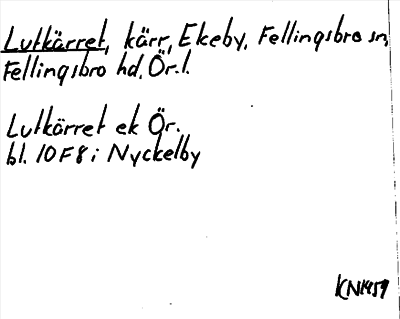 Lutkärret, kärr, Ekeby, Fellingsbro sn,
Fellingsbro hd, Ör.l.
Lutkärret ek Ör.
bl. 10F8i Nyckelby
KN1959